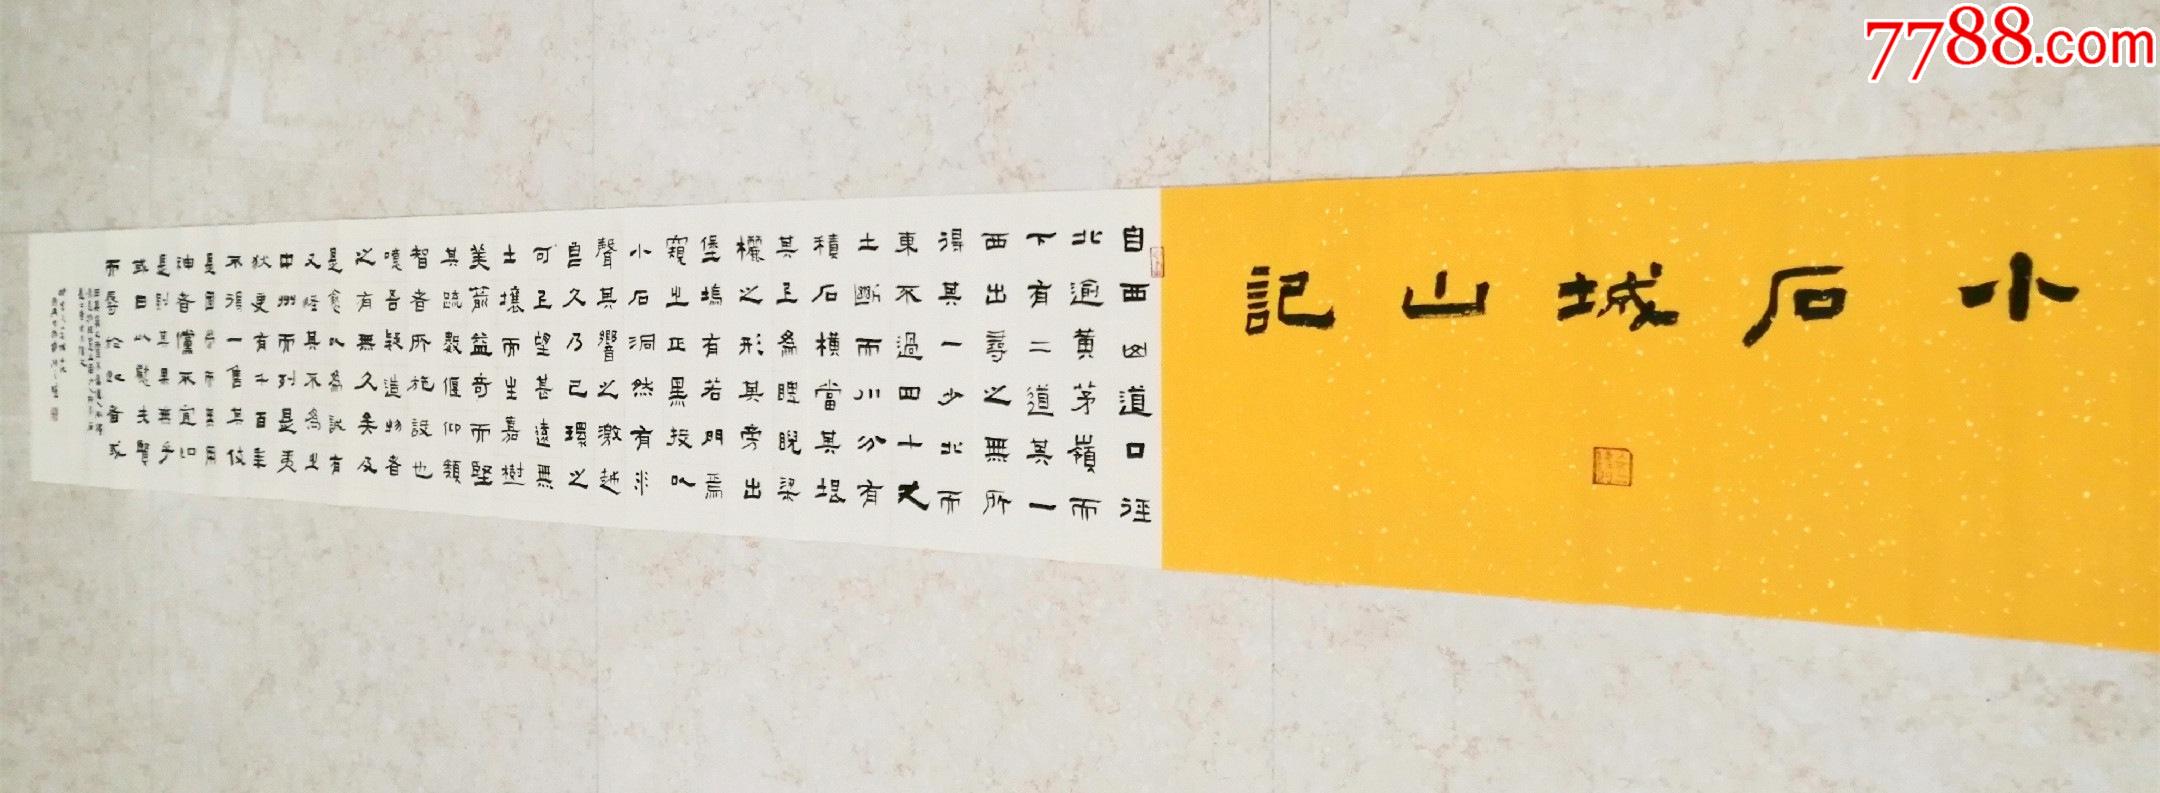 7788.com
小石城山記
自西山道口徑
北逾黄茅嶺而
下有二道其一
西出尋之無所
得其一少北而
東不過四十丈
土斷而川分有
積石横當其垠
其上爲睥睨梁
欐之形其旁出
堡塢有若門焉
窺之正黑投以
小石洞然有水
聲其響之激越
良久乃已環之
可上望甚遠無
土壤而生嘉樹
美箭益奇而堅
其疏數偃仰類
智者所施設也
噫吾疑造物者
之有無久矣及
是愈以爲誠有
又怪其不爲之
中州而列是夷
狄更有千百年
不得一售其伎
是固勞而無用
神者儻不宜如
是則其果無乎
或曰以慰夫賢
而辱於此者或